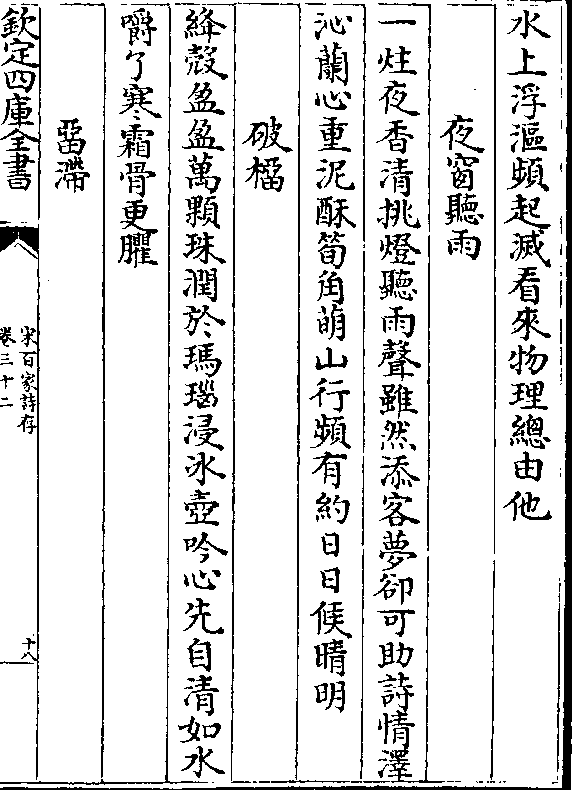 水上浮漚頻起滅看來物理總由他
夜窗聽雨
一炷夜香清挑燈聽雨聲雖然添客夢卻可助詩情澤
沁蘭心重泥酥筍角萌山行頻有約日日候晴明
破橊
絳殼盈盈萬顆珠潤於瑪瑙浸冰壺吟心先自清如水
嚼了寒霜骨更臞
畱滯
欽定四庫全書
宋百家詩存
卷三十二
十八